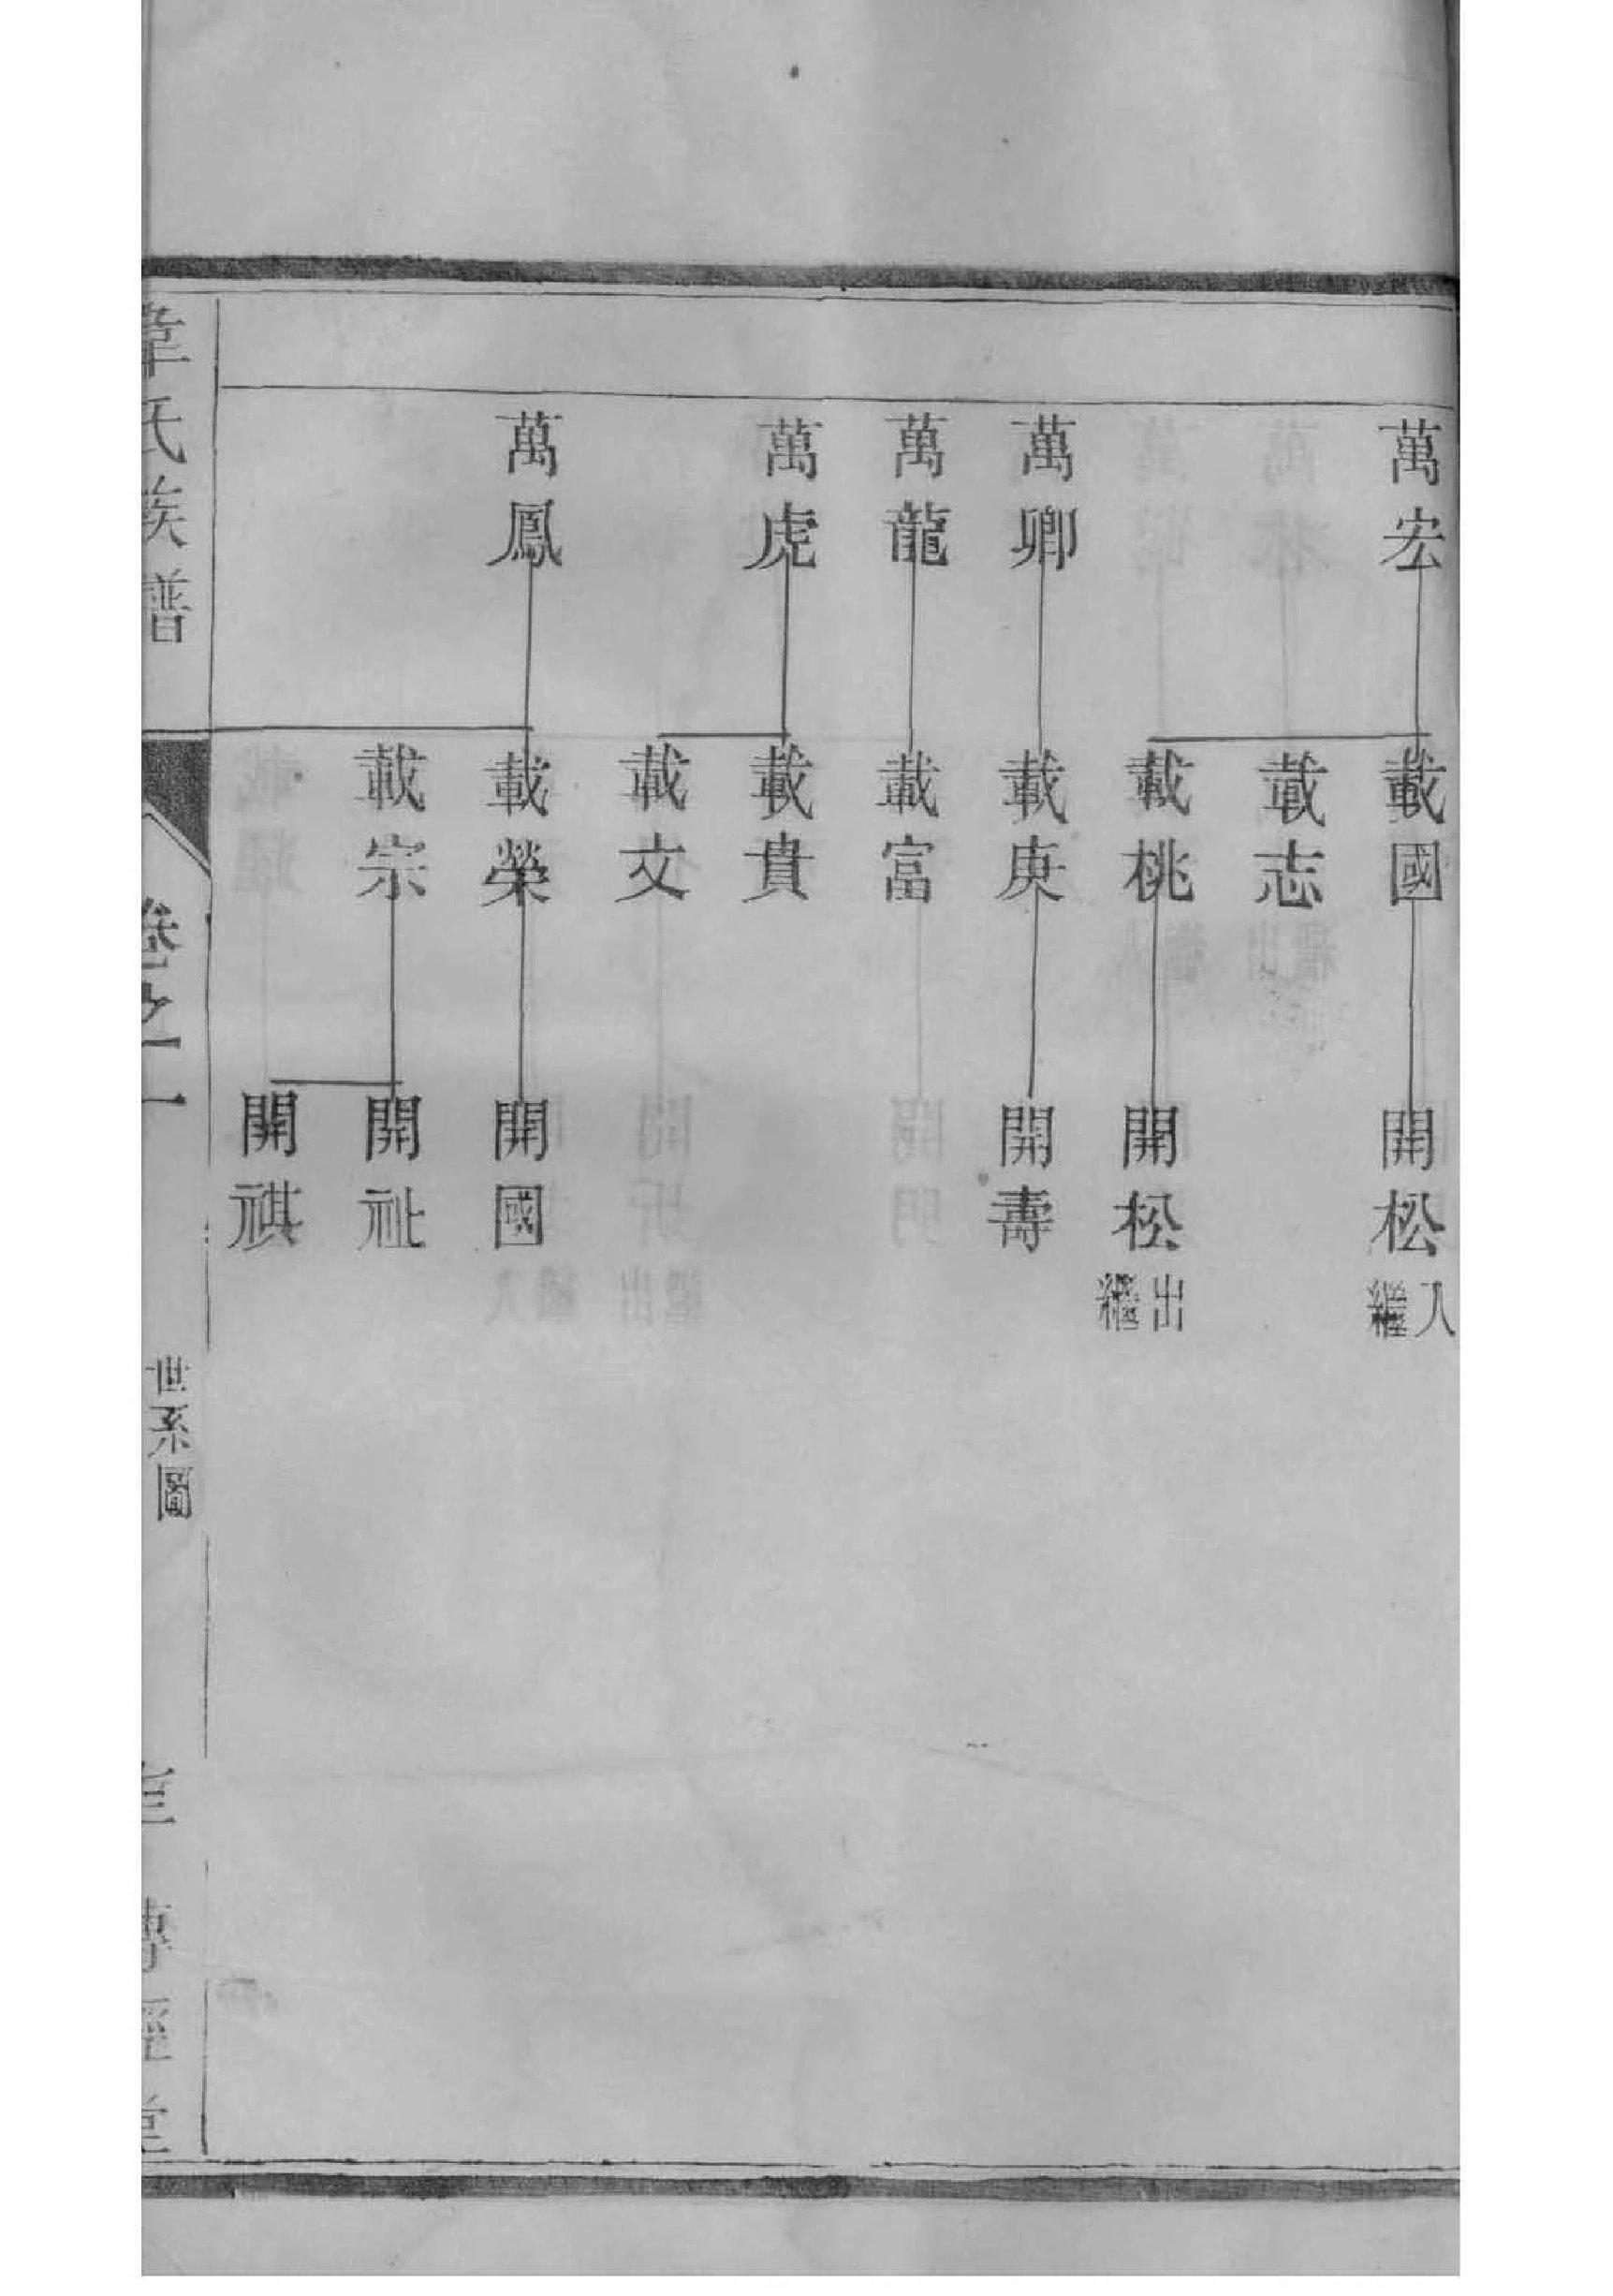 萬宏
萬卿
萬龍
萬虎
萬鳳
載國
載志
載桃
載庚
載富
載貴
載文
載榮
載宗
開松
入繼
開松
出繼
開壽
開國
開祉
開祺
韋氏族譜
卷之一
世系圖
傳經堂